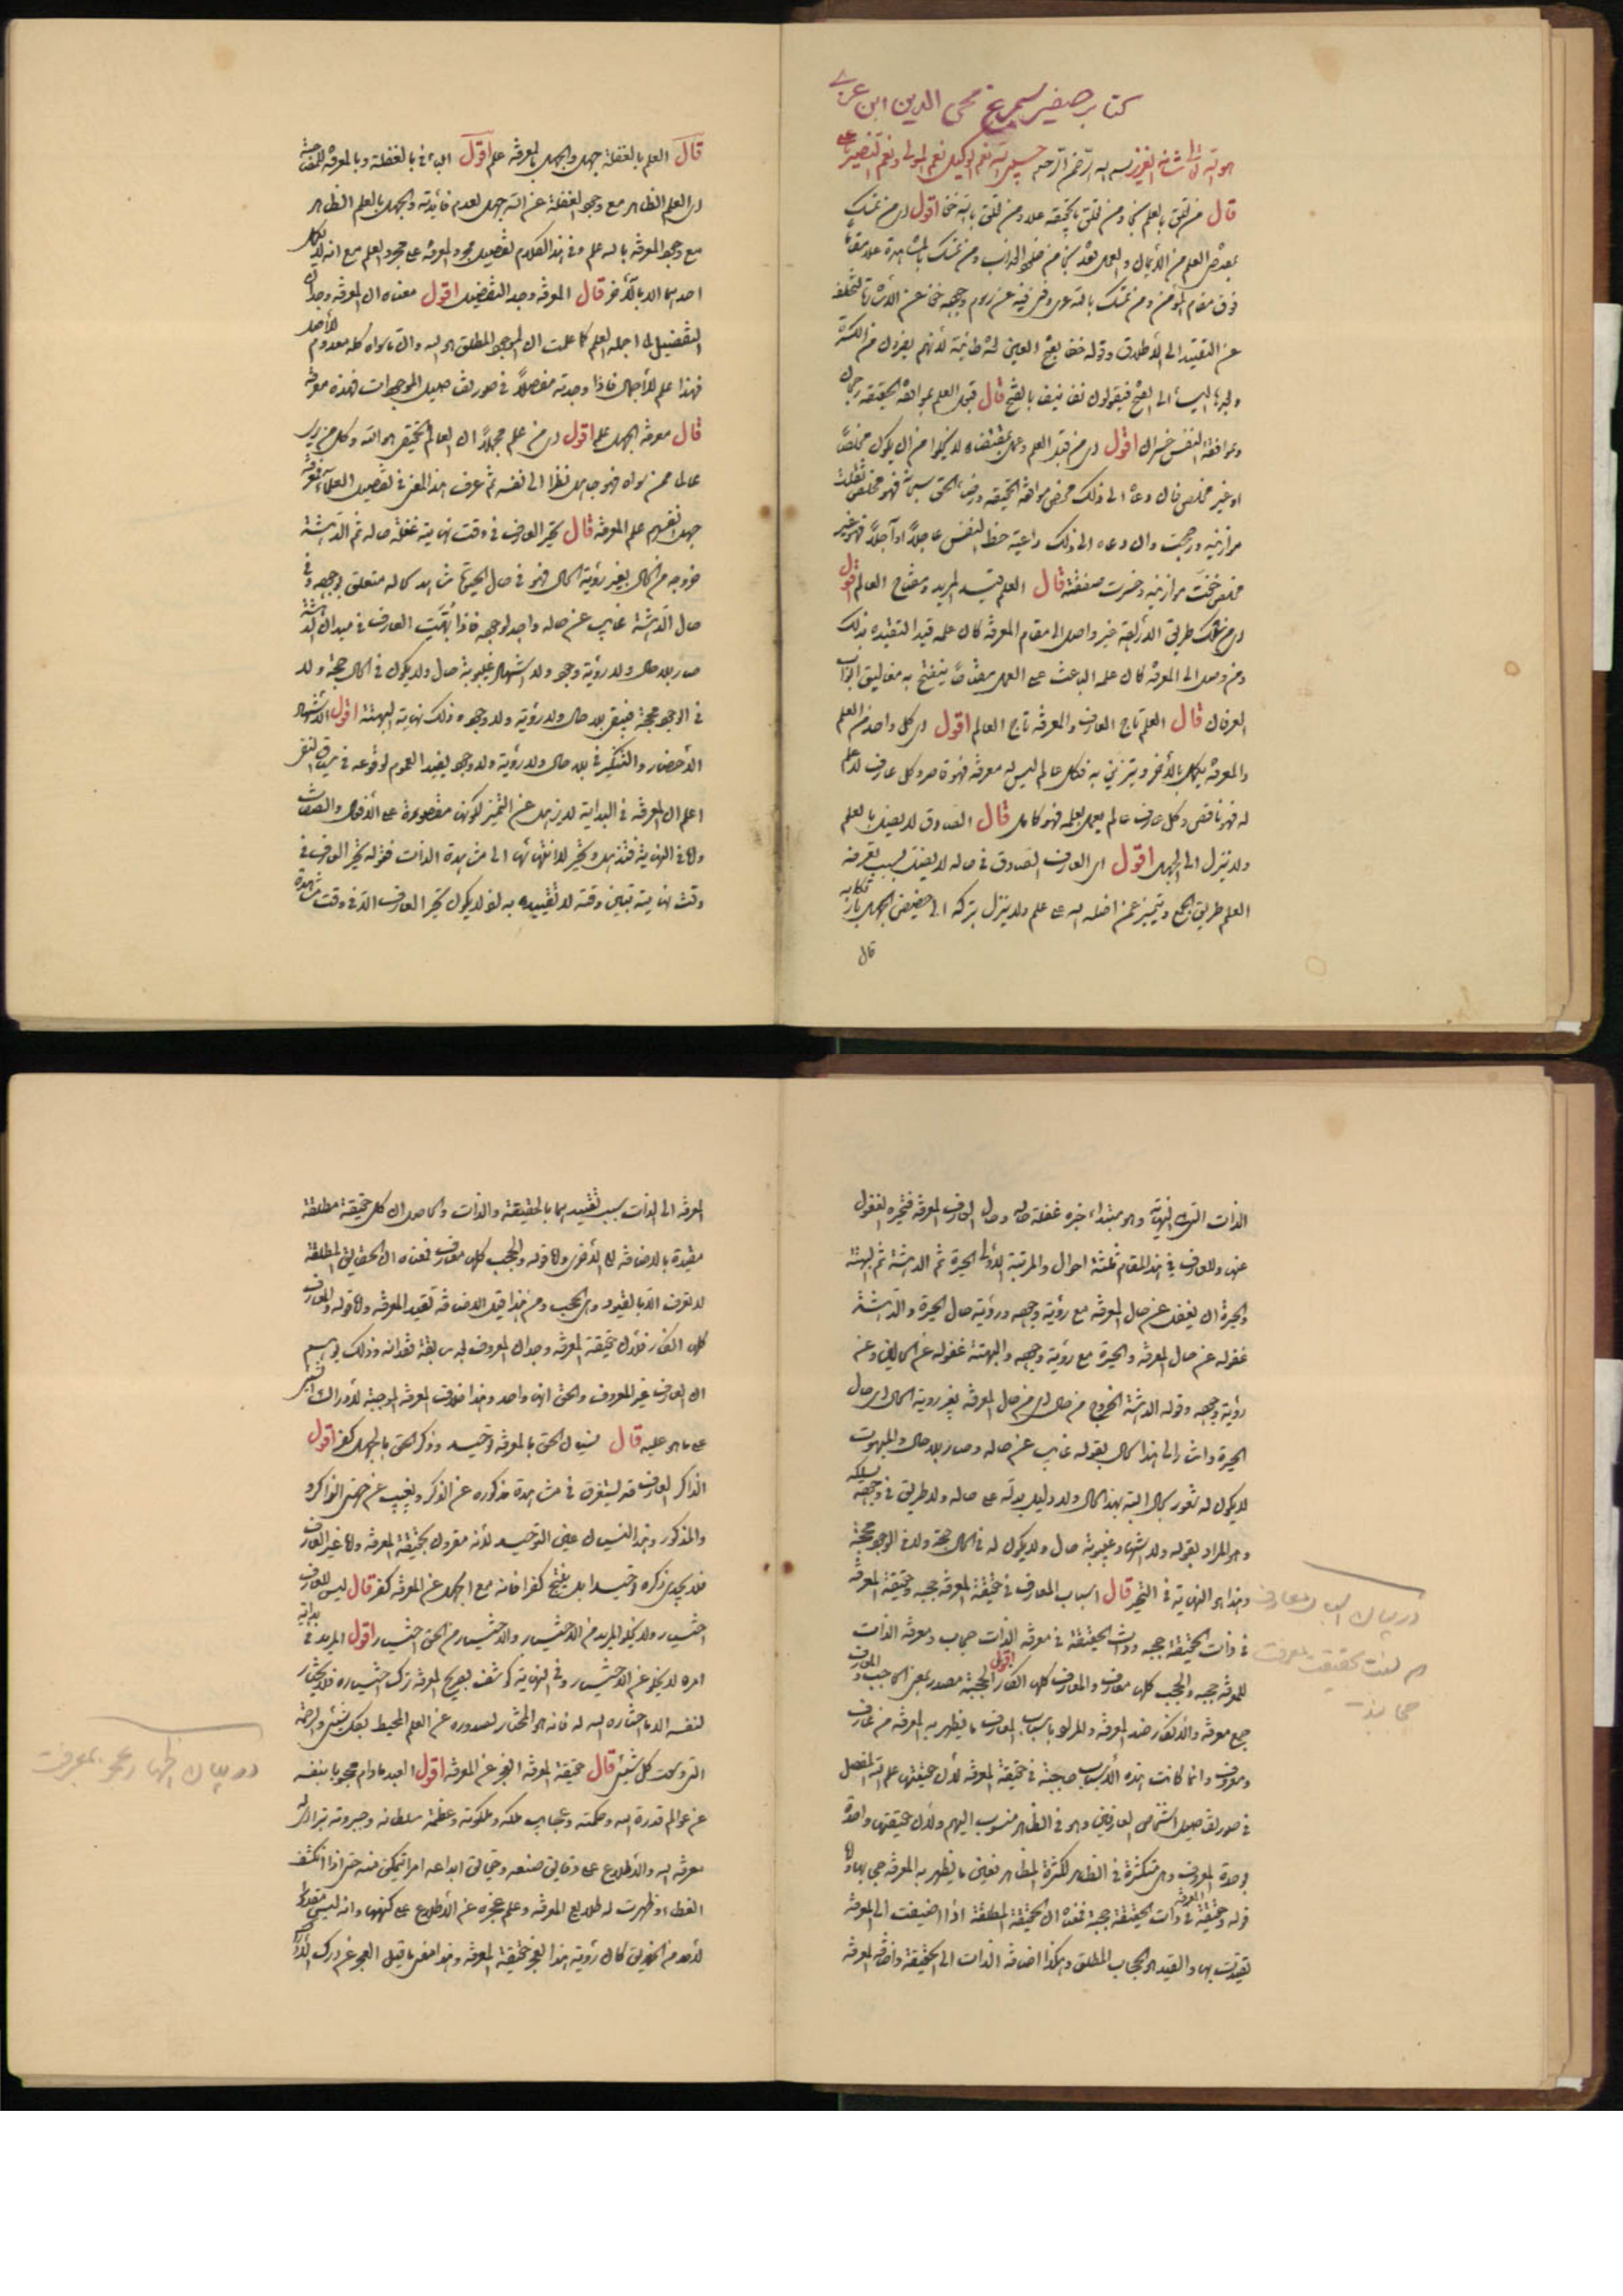 كتاب صفير سيمرغ محى الدين ابن عربى
هو الله تعالى شانه العزيز بسم الله الرحمن الرحيم حسبى الله نعم الوكيل نعم المولى ونعم النصير
قال من تعلق بالعلم نجى ومن تعلق بالحقيقة علا ومن تعلق بالله اقول اى من تمسك
فوق مقام المؤمن ومن تمسك بالله
عن التقييد الى الاطلاق وقوله
قال قبول العلم بموافقة الحقيقة
وبموافقة النفس خسران اقول اى من قبل العلم وعمل بمقتضاه لا يخلوا من ان يكون مخلصا
او غير مخلص فان دعاه الى ذلك محض موافقة الحقيقة
موازينه ورجحت وان دعاه الى ذلك داعية حظ النفس عاجلا او آجلا فهو غير
مخلص خفت موازينه وخسرت صفقته قال العلم قيد المريد ومفتاح العالم اقول
اى من سلك طريق الشريعة غير واصل الى مقام المعرفة كان علمه قيد التقيده بذلك
ومن وصل الى المعرفة كان علمه الباعث على العمل مفتاحا ينفتح به مغاليق ابواب
العرفان قال العلم تاج العارف والمعرفة تاج العالم اقول اى كل واحد من العلم
والمعرفة يكمل بالاخر ويتزين به فكل عالم ليس له معرفة فهو قاصر وكل عارف لا علم
له فهو ناقص وكل عارف عالم يعمل بعلمه فهو كامل قال الصادق لا يضل بالعلم
ولا ينزل الى الجهل اقول اى العارف الصادق فى حاله لا يضل بسبب تفرقة
العلم طريق الجمع ويتميز عمن اضله الله على علم ولا ينزل بتركه الى حضيض الجهل
قال
قال العلم بالغفلة جهل والجهل بالمعرفة علم اقول الباء فى بالغفلة وبالمعرفة للمصاحبة
اى العلم الظاهر مع وجود الغفلة عن الله جهل لعدم فائدته والجهل بالعلم الظاهر
مع وجود المعرفة بالله علم وفى هذا الكلام تفضيل مجرد المعرفة على مجرد العلم مع انه لا يكمل
احدهما الا بالاخر قال المعرفة وجد التفصيل اقول معناه ان المعرفة وجدان
التفصيل فى اجله العلم كما علمت ان الموجود المطلق هو الله وان ما سواه كله معدوم الاصل
فهذا علم الاجمال فاذا وجدته مفصلا فى صور تفاصيل الموجودات فهذه معرفة
قال معرفة الجهل علم اقول اى من علم مجملا ان العالم الحقيقى هو الله وكل من يرى
عالما ممن سواه فهو جاهل نظرا الى نفسه ثم عرف هذا المعنى فى تفصيل العلماء فمعرفة
جهل انفسهم علم المعرفة قال تحير العارف فى وقت نهايته غفلة حاله ثم الدهشة
خروجه من الحال بغير رؤية الحال فهو فى حال الحيرة شاهد كماله متعلق لوجوده وفى
حال الدهشة غايب عن حاله واجد لوجوده فاذا بهت العارف فى ميدان الدهشة
صار بلا حال ولا رؤية وجود ولا اشهاد غيبوبة حال ولا يكون فى الحال حجة ولا
فى الوجود محجة فيبقى بلا حال ولا رؤية ولا وجود وذلك نهاية البهتة اقول الاشهاد
الاحضار والتنكير فى بلا حال ولا رؤية ولا وجود يفيد العموم لوقوعه فى سياق النفى
اعلم ان المعرفة فى البداية لا يذهل عن التميز لكونه مقصورة على الافعال والصفات
واما فى النهاية فتذهل وتحير لانتهائها الى مشاهدة الذات فقوله تحير العارف فى
وقت نهايته تبيين وقته لا تقييده به لئلا يكون تحير العارف الا فى وقت مشاهدة
الذات التى هى النهاية وهو مبتداء خبره غفلة حاله وحال العارف المعرفة فتحيره الغفول
عنها وللعارف فى هذا المقام ثلثة احوال والمرتبة الاولى الحيرة ثم الدهشة ثم البهتة
والحيرة ان يغفل عن حال المعرفة مع رؤية وجوده ورؤية حال الحيرة والدهشة
غفوله عن حال المعرفة والحيرة مع رؤية وجوده والبهتة غفوله عن الحالين وعن
رؤية وجوده وقوله الدهشة الخروج من حال اى من حال المعرفة بغير روية الحال اى حال
الحيرة واشار الى هذا الحال بقوله غايب عن حاله وصار بلا حال والمبهوت
لا يكون له شعور بحال البتة بهذا الحال ولا دليل يدله على حاله ولا طريق فى وجوده يسلكه
وهو المراد بقوله ولا اشهاد غيبوبة حال ولا يكون له فى الحال حجة ولا فى الوجود محجة
وهذا هو النهاية فى التحير قال اسباب المعارف فى حقيقة المعرفة حجبه وحقيقة المعرفة
فى ذات الحقيقة حجبه وذات الحقيقة فى معرفة الذات حجاب ومعرفة الذات
للمعرفة حجبه والحجب كلها معارف والمعارف كلها انكار اقول الحجبة مصدر بمعنى الحاجب والمعارف
جمع معرفة والانكار ضد المعرفة والمراد باسباب المعارف ما يظهر به المعرفة من عارف
ومعروف وانما كانت هذه الاسباب حاجبة فى حقيقة المعرفة لان حقيقتها علم الله المفصل
فى صور تفاصيل اشخاص العارفين وهو فى الظاهر منسوب اليهم ولان حقيقتها واحدة
بوحدة المعروف وهى متكثرة فى الظاهر لكثرة المظاهر فتعين ما يظهر به المعرفة حجابها واما
قوله وحقيقة المعرفة فى ذات الحقيقة حجبة فمعناه ان الحقيقة المطلقة اذا اضيفت الى المعرفة
تقيدت بها والقيد هو الحجاب المطلق وهكذا اضافة الذات الى الحقيقة واضافة المعرفة
در بيان اسباب معارف
كه
حقيقت معرفت
حجابند
المعرفة الى الذات بسبب تقييدهما بالحقيقة والذات والحاصل ان كل حقيقة مطلقة
مقيدة بالاضافة الى الاخرى واما قوله والحجب كلها معارف فمعناه ان الحقايق المطلقة
لا تعرف الا بالقيود وهى الحجب ومن هذا قيل الاضافة تفيد المعرفة واما قوله والمعارف
كلها انكار فلان حقيقة المعرفة وجدان المعروف بعد سابقة فقدانه وذلك يوهم
ان العارف غير المعروف والحق انها واحد وهذا خلاف المعرفة الموجبة لادراك الشئ
على ما هو عليه قال نسيان الحق بالمعرفة توحيد وذكر الحق بالجهل كفر اقول
الذاكر العارف قد يستغرق فى مشاهدة مذكوره عن الذكر ويغيب عن حضور الذاكر
والمذكور وهذا النسيان عين التوحيد لانه مقرون بحقيقة المعرفة واما غير العارف
فلا يجدى ذكره توحيدا بل ينتج كفرا فانه مع الجهل عن المعرفة كفر قال ليس للعارف
اختيار ولا يخلو المريد من الاختيار والاختيار من الحق اختيار اقول المريد فى بداية
امره لا يخلو عن الاختيار وفى النهاية كوشف بصريح المعرفة ترك اختياره فلا يختار
لنفسه الا ما اختاره الله له فانه هو المختار لصدوره عن العلم المحيط بكل شئ والرحمة
التى وسعت كل شئ قال حقيقة المعرفة العجز عن المعرفة اقول العبد ما دام محجوبا بنفسه
عن عوالم قدرة الله وحكمته وعجايب ملكه وملكوته وعظمة سلطانه وجبروته
معرفة الله والاطلاع على دقايق صنعه وحقايق ابداعه امرا يمكن منه حتى اذا انكشف
الغطاء وظهرت له طلايع المعرفة وعلم عجزه عن الاطلاع على كنهها وانه ليس مقدورا
لاحد من الخلايق كان رؤية هذا العجز حقيقة المعرفة وهذا معنى ما قيل العجز عن درك الادراك
در بيان اظهار عجز بمعرفت